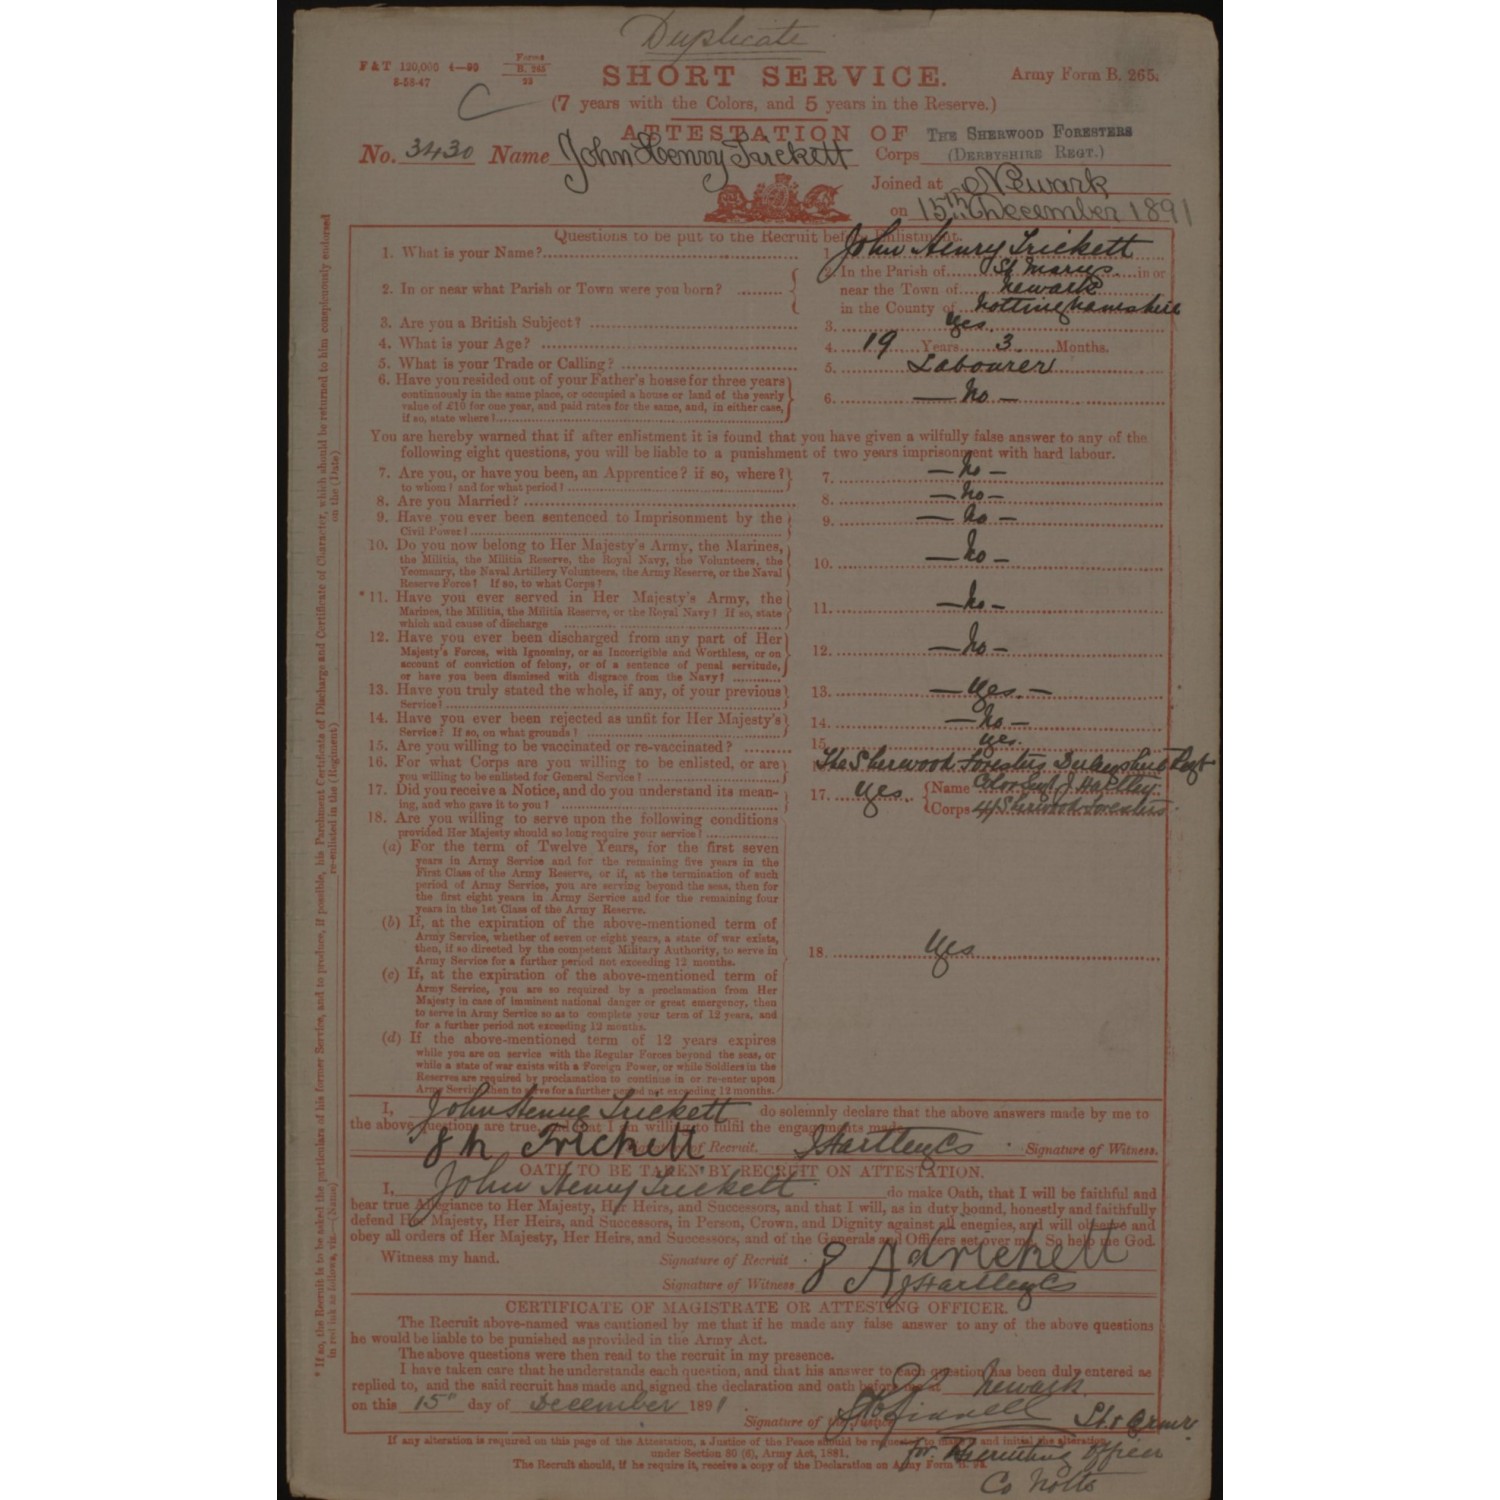 Duplicate
F & T 120,000 4—90 Forms B. 265 Army Form B. 265.
SHORT SERVICE.
(7 years with the Colors, and 5 years in the Reserve.)
ATTESTATION OF
No. 3430 Name John Henry Trickett Corps THE SHERWOOD FORESTERS (DERBYSHIRE REGT.)
Joined at Newark
on 15th December 1891
Questions to be put to the Recruit before Enlistment.
1. What is your Name? 1. John Henry Trickett
2. In or near what Parish or Town were you born? 2. In the Parish of St Marys in or
near the Town of Newark
in the County of Nottinghamshire
3. Are you a British Subject? 3. Yes.
4. What is your Age? 4. 19 Years 3 Months.
5. What is your Trade or Calling? 5. Labourer
6. Have you resided out of your Father's house for three years
continuously in the same place, or occupied a house or land of the yearly
value of £10 for one year, and paid rates for the same, and, in either case,
if so, state where? 6. — No —
You are hereby warned that if after enlistment it is found that you have given a wilfully false answer to any of the
following eight questions, you will be liable to a punishment of two years imprisonment with hard labour.
7. Are you, or have you been, an Apprentice? if so, where?
to whom? and for what period? 7. — No —
8. Are you Married? 8. — No —
9. Have you ever been sentenced to Imprisonment by the
Civil Power? 9. — No —
10. Do you now belong to Her Majesty's Army, the Marines,
the Militia, the Militia Reserve, the Royal Navy, the Volunteers, the
Yeomanry, the Naval Artillery Volunteers, the Army Reserve, or the Naval
Reserve Force? If so, to what Corps? 10. — No —
* 11. Have you ever served in Her Majesty's Army, the
Marines, the Militia, the Militia Reserve, or the Royal Navy? If so, state
which and cause of discharge 11. — No —
12. Have you ever been discharged from any part of Her
Majesty's Forces, with Ignominy, or as Incorrigible and Worthless, or on
account of conviction of felony, or of a sentence of penal servitude,
or have you been dismissed with disgrace from the Navy? 12. — No —
13. Have you truly stated the whole, if any, of your previous
Service? 13. — Yes. —
14. Have you ever been rejected as unfit for Her Majesty's
Service? If so, on what grounds? 14. — No —
15. Are you willing to be vaccinated or re-vaccinated? 15. Yes.
16. For what Corps are you willing to be enlisted, or are
you willing to be enlisted for General Service? The Sherwood Foresters Derbyshire Regt
17. Did you receive a Notice, and do you understand its mean-
ing, and who gave it to you? 17. Yes. Name Color Sergt J. Hartley
Corps 4/Sherwood Foresters
18. Are you willing to serve upon the following conditions
provided Her Majesty should so long require your service?
(a) For the term of Twelve Years, for the first seven
years in Army Service and for the remaining five years in the
First Class of the Army Reserve, or if, at the termination of such
period of Army Service, you are serving beyond the seas, then for
the first eight years in Army Service and for the remaining four
years in the 1st Class of the Army Reserve.
(b) If, at the expiration of the above-mentioned term of
Army Service, whether of seven or eight years, a state of war exists,
then, if so directed by the competent Military Authority, to serve in
Army Service for a further period not exceeding 12 months.
18. Yes
(c) If, at the expiration of the above-mentioned term of
Army Service, you are so required by a proclamation from Her
Majesty in case of imminent national danger or great emergency, then
to serve in Army Service so as to complete your term of 12 years, and
for a further period not exceeding 12 months.
(d) If the above-mentioned term of 12 years expires
while you are on service with the Regular Forces beyond the seas, or
while a state of war exists with a Foreign Power, or while Soldiers in the
Reserves are required by proclamation to continue in or re-enter upon
Army Service, then to serve for a further period not exceeding 12 months.
I, John Henry Trickett do solemnly declare that the above answers made by me to
the above questions are true, and that I am willing to fulfil the engagements made.
J h Trickett Signature of Recruit. J Hartley CS Signature of Witness.
OATH TO BE TAKEN BY RECRUIT ON ATTESTATION.
I, John Henry Trickett do make Oath, that I will be faithful and
bear true Allegiance to Her Majesty, Her Heirs, and Successors, and that I will, as in duty bound, honestly and faithfully
defend Her Majesty, Her Heirs, and Successors, in Person, Crown, and Dignity against all enemies, and will observe and
obey all orders of Her Majesty, Her Heirs, and Successors, and of the Generals and Officers set over me. So help me God.
Witness my hand. Signature of Recruit
Signature of Witness J Hartley CS
CERTIFICATE OF MAGISTRATE OR ATTESTING OFFICER.
The Recruit above-named was cautioned by me that if he made any false answer to any of the above questions
he would be liable to be punished as provided in the Army Act.
The above questions were then read to the recruit in my presence.
I have taken care that he understands each question, and that his answer to each question has been duly entered as
replied to, and the said recruit has made and signed the declaration and oath before me at Newark
on this 15th day of December 1891
Signature of the Justice
for Recruiting Officer
Co Notts
If any alteration is required on this page of the Attestation, a Justice of the Peace should be requested to make it and initial the alteration
under Section 80 (6), Army Act, 1881.
The Recruit should, if he require it, receive a copy of the Declaration on Army Form
* If so, the Recruit is to be asked the particulars of his former Service, and to produce, if possible, his Parchment Certificate of Discharge and Certificate of Character, which should be returned to him conspicuously endorsed
in red ink as follows, viz.—(Name) re-enlisted in the (Regiment) on the (Date)